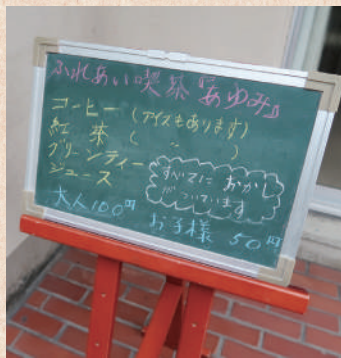 ふれあい喫茶『あゆみ』
コーヒー（アイスもあります）
紅茶（　〃　）
グリーンティー
ジュース
すべてに おかし
がついています
大人100円 お子様 50円